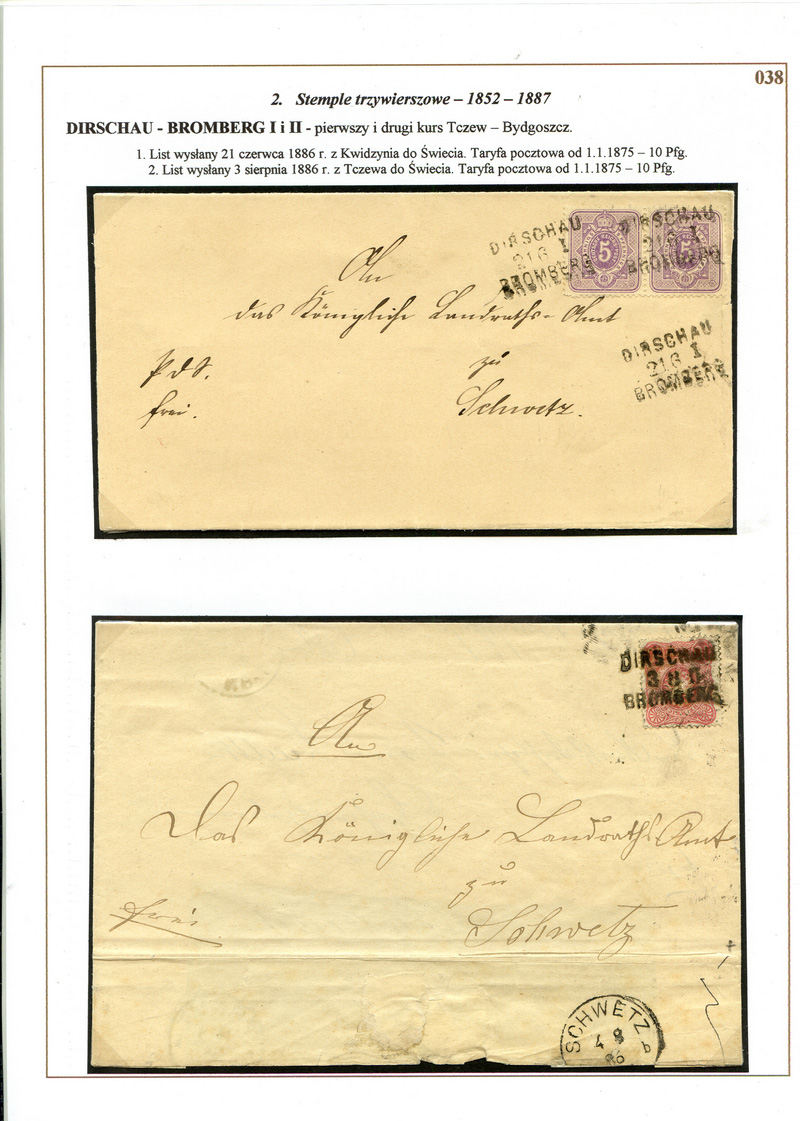 038
2. Stemple trzywierszowe – 1852 – 1887
DIRSCHAU - BROMBERG I i II - pierwszy i drugi kurs Tczew – Bydgoszcz.
1. List wysłany 21 czerwca 1886 r. z Kwidzynia do Świecia. Taryfa pocztowa od 1.1.1875 – 10 Pfg.
2. List wysłany 3 sierpnia 1886 r. z Tczewa do Świecia. Taryfa pocztowa od 1.1.1875 – 10 Pfg.
DIRSCHAU
21 6 I
BROMBERG
5
DIRSCHAU
21 6 I
BROMBERG
5
An
das Königliche Landraths-Amt
DIRSCHAU
21 6 I
BROMBERG
P d S.
zu
frei.
Schwetz.
DIRSCHAU
3 8 II
BROMBERG
An
Das Königliche Landraths Amt
zu
frei
Schwetz
SCHWETZ
4 8
86
b